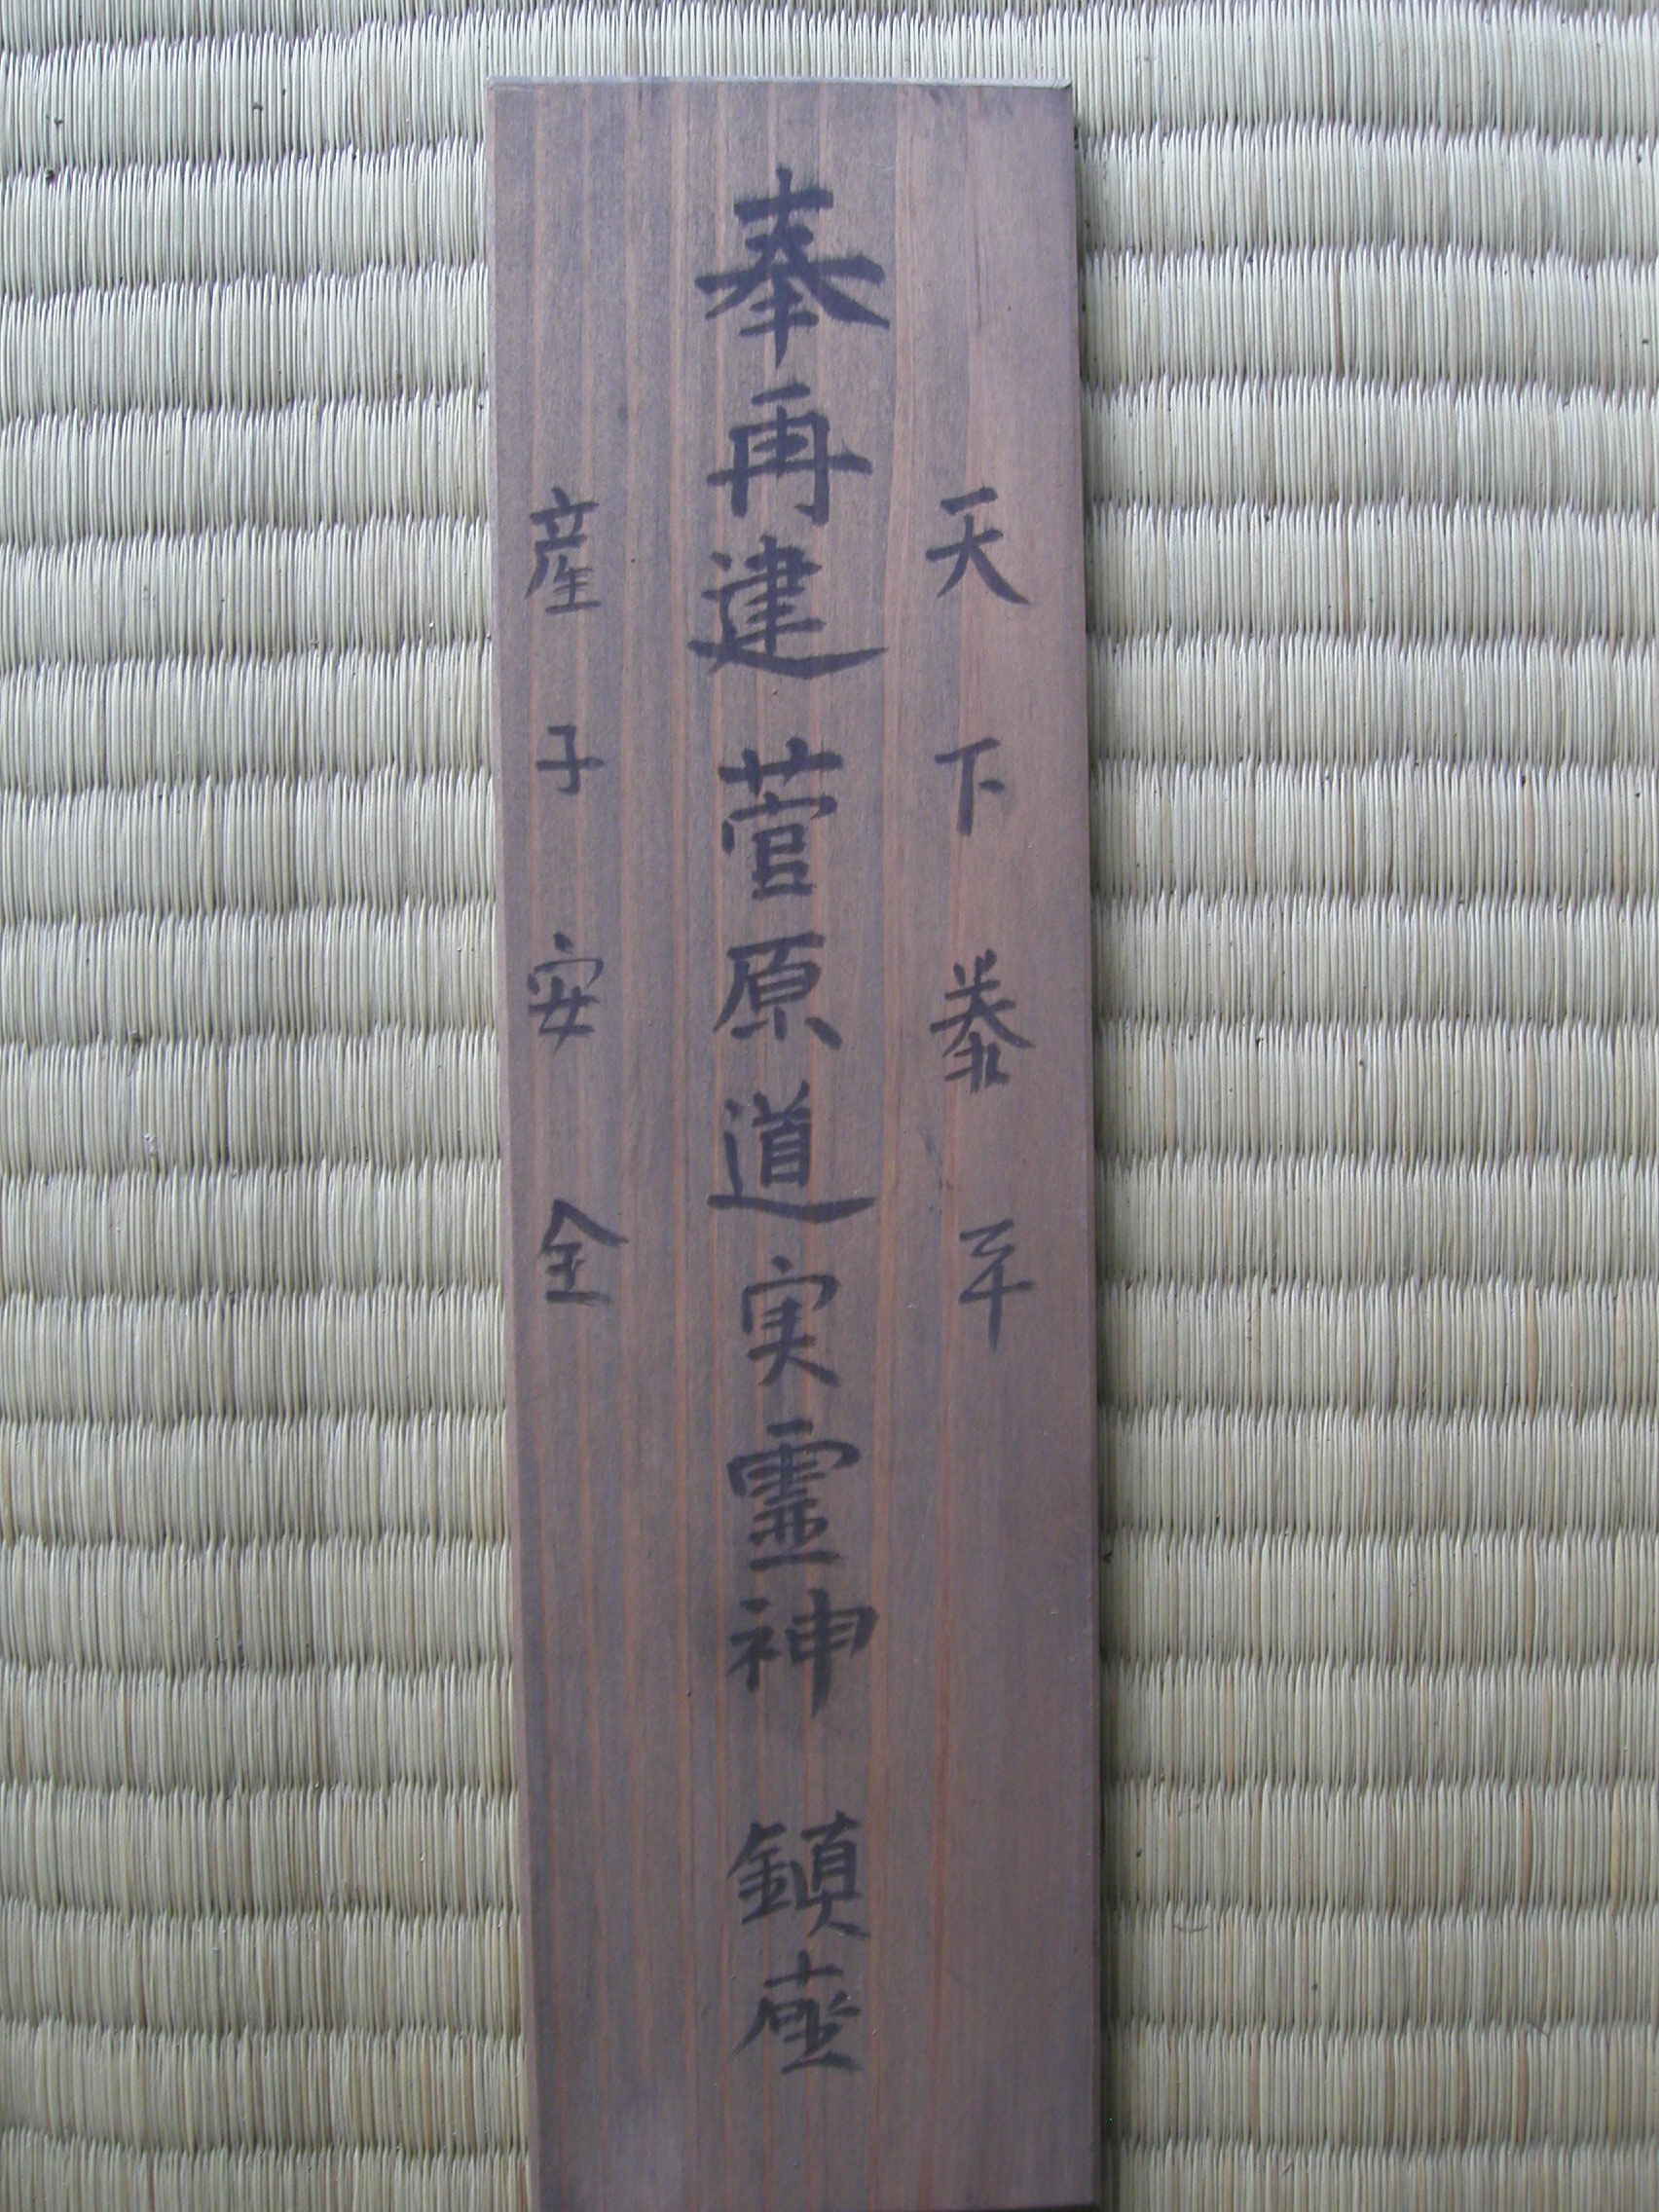 天下泰平
奉再建 菅原道実霊神 鎮座
産子安全